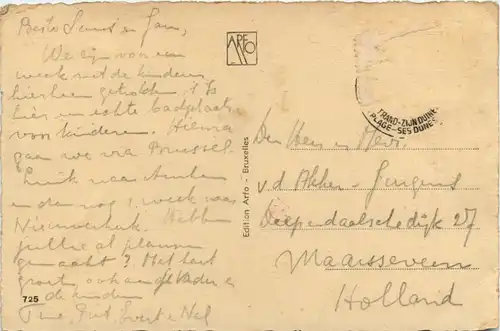 Beste Sunt en Jan,
We zijn voor een
week met de kinderen
hierheen getrokken, 't Is
hier een echte badplaats
voor kinderen. Hierna
gaan we via Brussel
Luik naar Arnhem
en dan nog 1 week naar
Hebben
jullie al plannen
gemaakt? Met hart.
groet, ook van Vader en
de kinderen
Tine, Piet, en Nel
725
ARFO
Edition Arfo - Bruxelles
STRAND - ZIJN DUINEN
PLAGE - SES DUNES
Den Heer en Mevr.
v.d. Akker - Jurgens
Diependaalschedijk 27
Maarsseveen
Holland